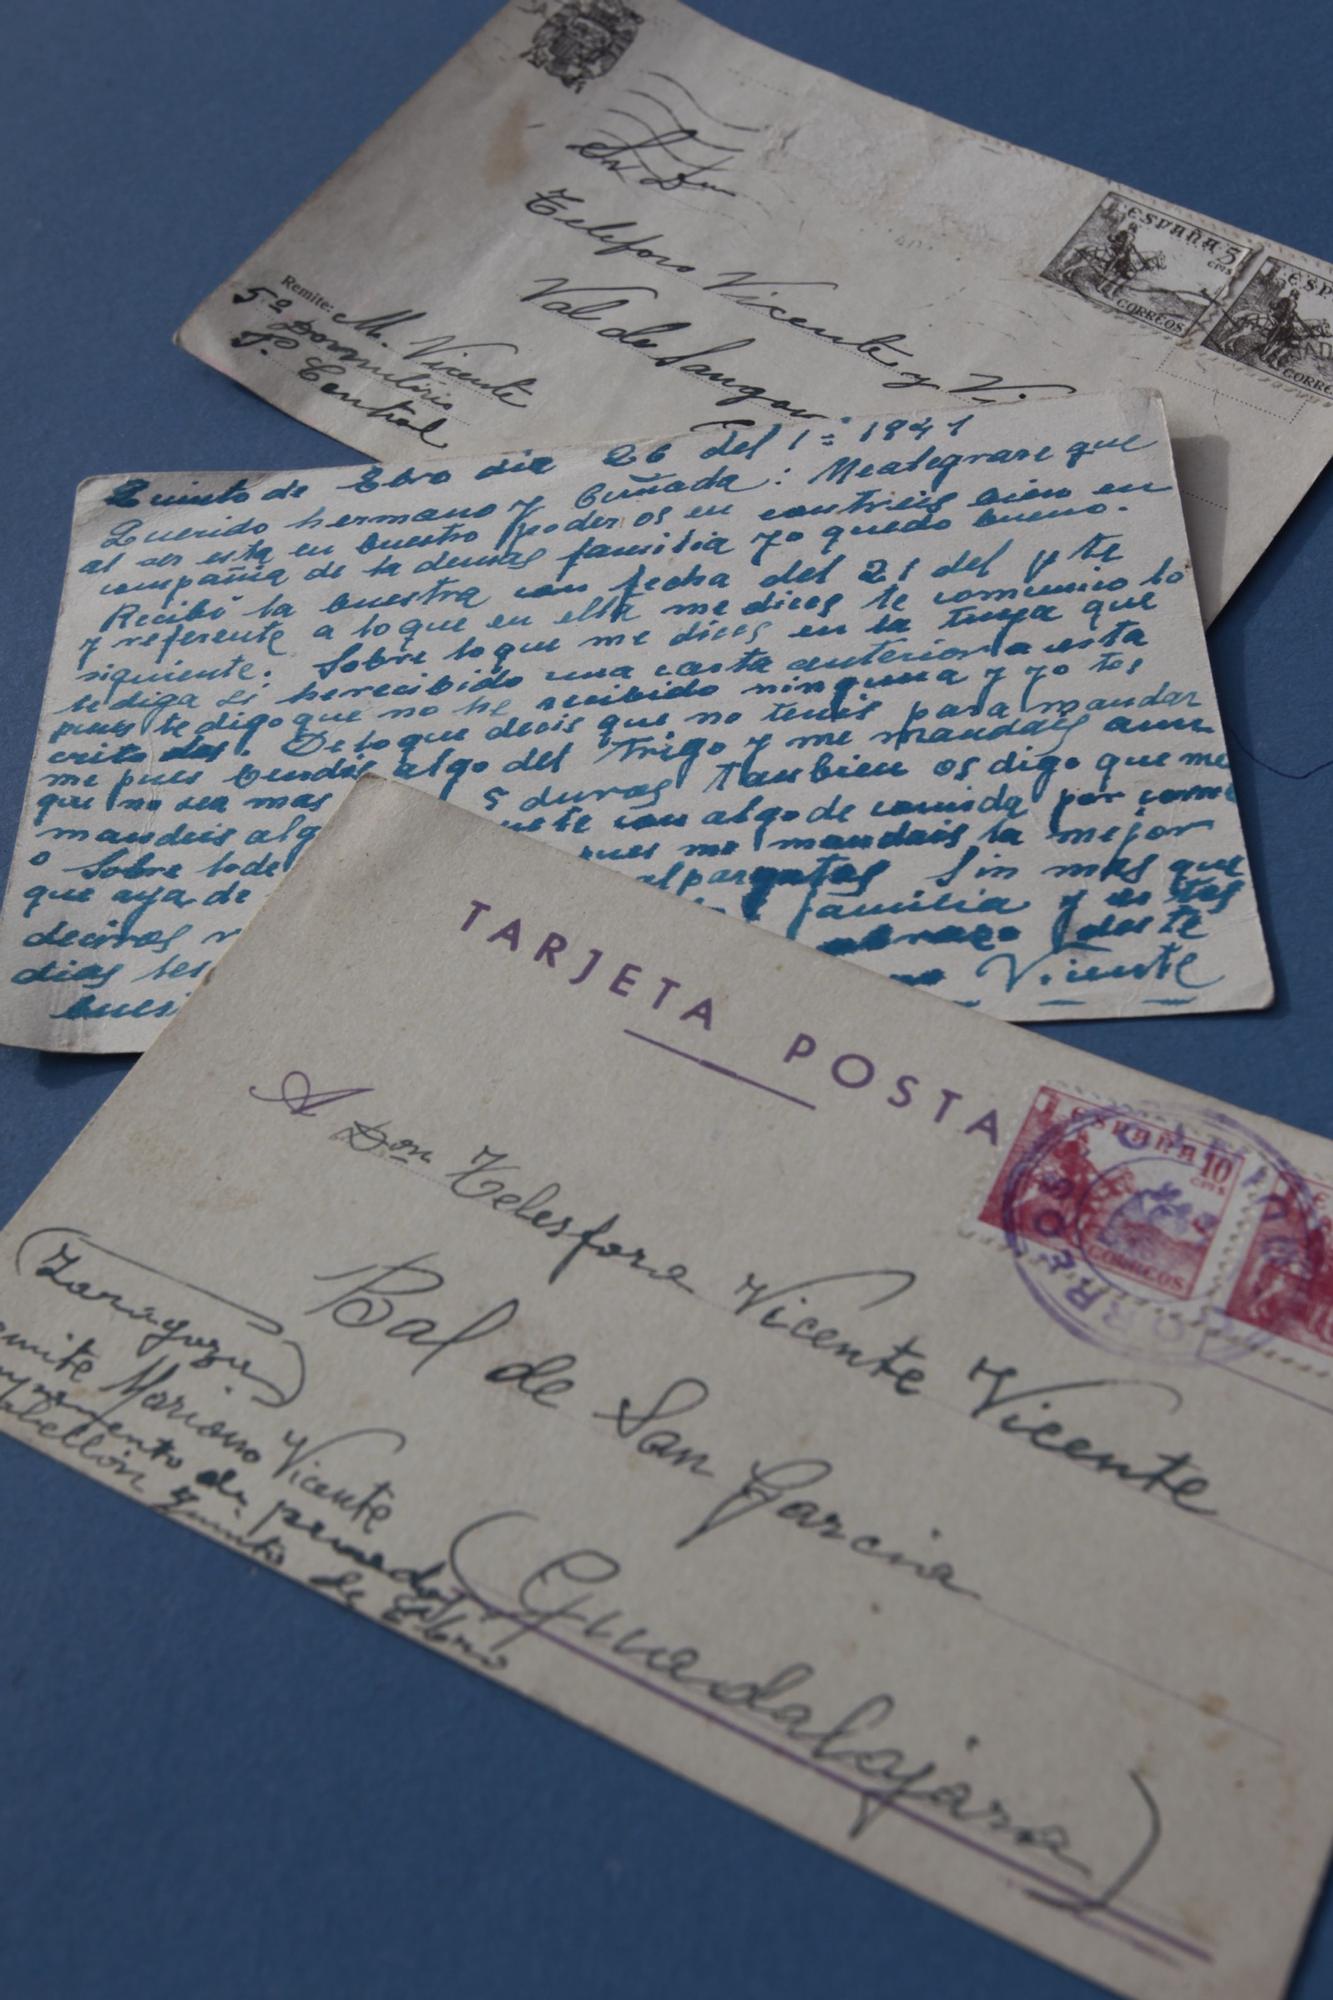 Sr Dn
Telesforo Vicente y Vi
Val de Sangar
ESPAÑA 5
CTMS
CORREOS
ESP
CORRE
Remite: M. Vicente
5º Dormitorio
P. Central
Quinto de Ebro dia 26 del 1º 1941
Querido hermano y Cuñada: Mealegrare que
al ser esta en buestro poder os en contreis bien en
compañia de la demas familia yo quedo bueno.
Recibi la buestra con fecha del 21 del y te
y referente a lo que en ella me dices te comunico lo
siguiente. Sobre lo que me dices en la tuya que
te diga si he recibido una carta anterior a esta
pues te digo que no he recibido ninguna y yo tes
crito dos. De lo que decis que no teneis para mandar
me pues bendis algo del Trigo y me mandais aun
que no sea mas 5 duros Tanbien os digo que me
mandeis alg con algo de comida por come
o Sobre tode pues me mandais la mejor
que aya de alpargatas Sin mas que
deciros familia y
dias abrazo deste
Vicente
TARJETA POSTA
ESPAÑA 10
CTMS
CORREOS
A Don Telesforo Vicente Vicente
Bal de San Garcia
(Guadalajara)
(Zaragoza)
Mariano Vicente
de
Quinto de Ebro